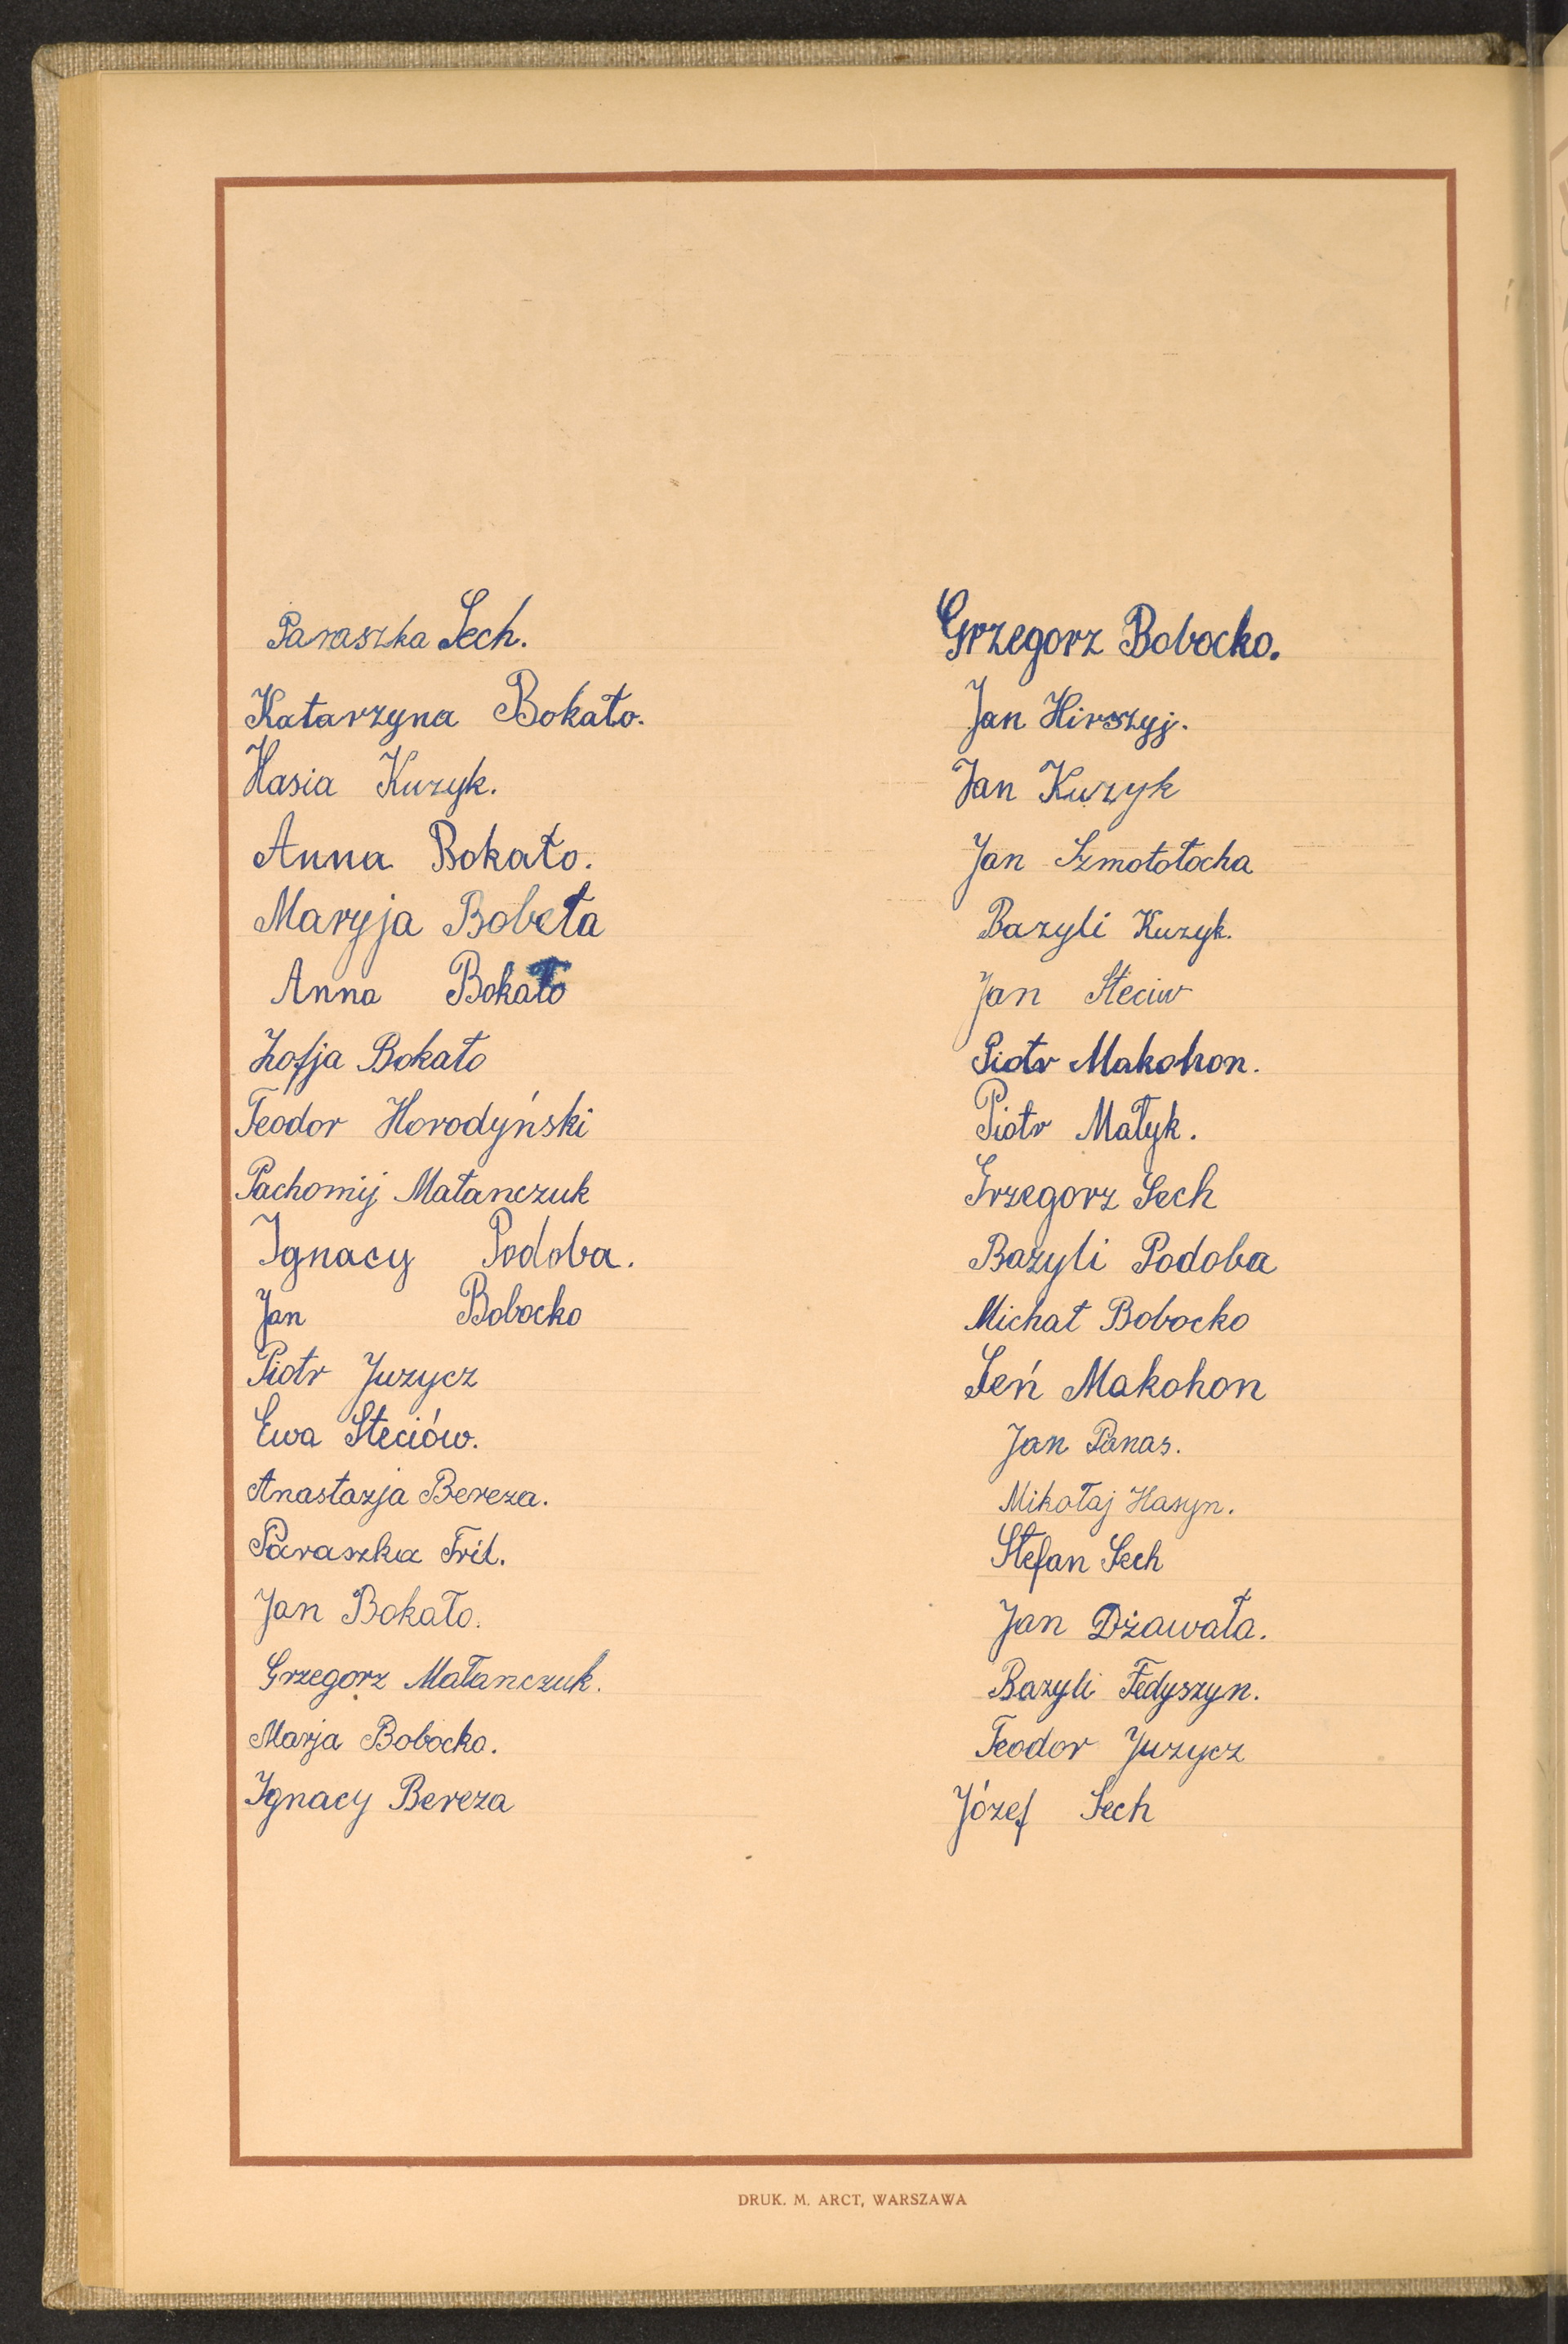 Paraszka Sech.
Katarzyna Bokało.
Hasia Kuzyk.
Anna Bokało.
Maryja Bobeła
Anna Bokało
Zofja Bokało
Teodor Horodyński
Pachomij Małanczuk
Ignacy Podoba.
Jan Bobocko
Piotr Juzycz
Ewa Steciów.
Anastazja Bereza.
Paraszka Tril.
Jan Bokało.
Grzegorz Małanczuk.
Marja Bobocko.
Ignacy Bereza
Grzegorz Bobocko.
Jan Hirszyj.
Jan Kuzyk
Jan Szmołołocha
Bazyli Kuzyk.
Jan Steciw
Piotr Makohon.
Piotr Małyk.
Grzegorz Sech
Bazyli Podoba
Michał Bobocko
Seń Makohon
Jan Panas.
Mikołaj Hasyn.
Stefan Sech
Jan Dżawała.
Bazyli Fedyszyn.
Teodor Juzycz
Józef Sech
DRUK. M. ARCT, WARSZAWA